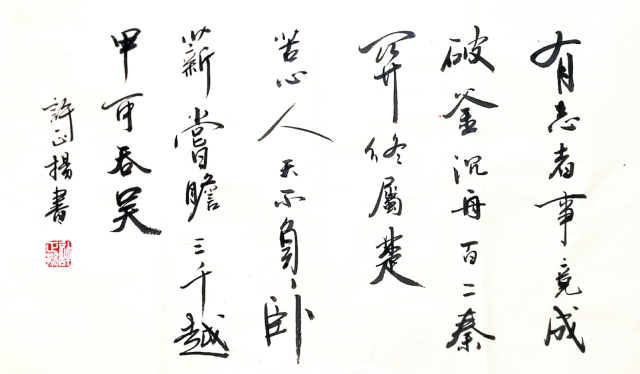 有志者事竟成
破釜沉舟百二秦
關終屬楚
苦心人天不負卧
薪嘗膽三千越
甲可吞吴
許正揚書